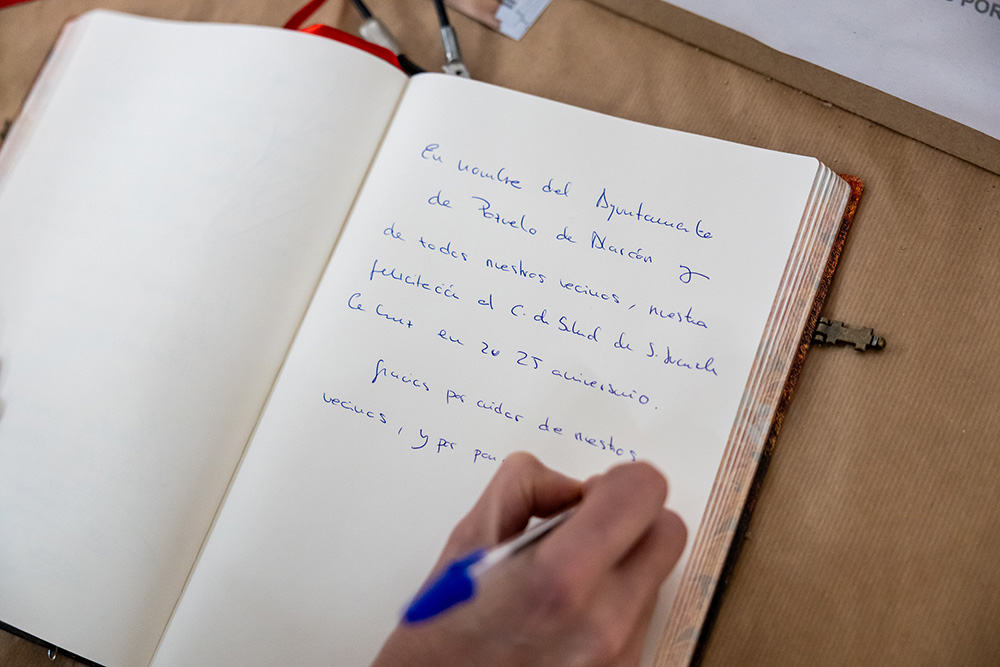 En nombre del Ayuntamiento
de Pozuelo de Alarcón y
de todos nuestros vecinos, nuestra
felicitación al C. de Salud de S. Juan de
la Cruz en su 25 aniversario.
Gracias por cuidar de nuestros
vecinos, y por pon
POR